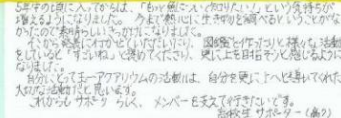 5年生の頃に入ってからは、「もっと魚について知りたい!」という気持ちが
増えるようになりました。今まで熱心に生きものを調べるということがな
かったので素晴らしいきっかけになりました。
をしていると「すごいね」と誉めてくださり、更に上を目指そうと感じるように
なりました。
自分にとって アクアリウムの活動は、自分を更に上へと導いてくれた
大切な活動だと思います。
これからもサポーターらしく、メンバーを支えて行きたいです。
高校生サポーター(高2)